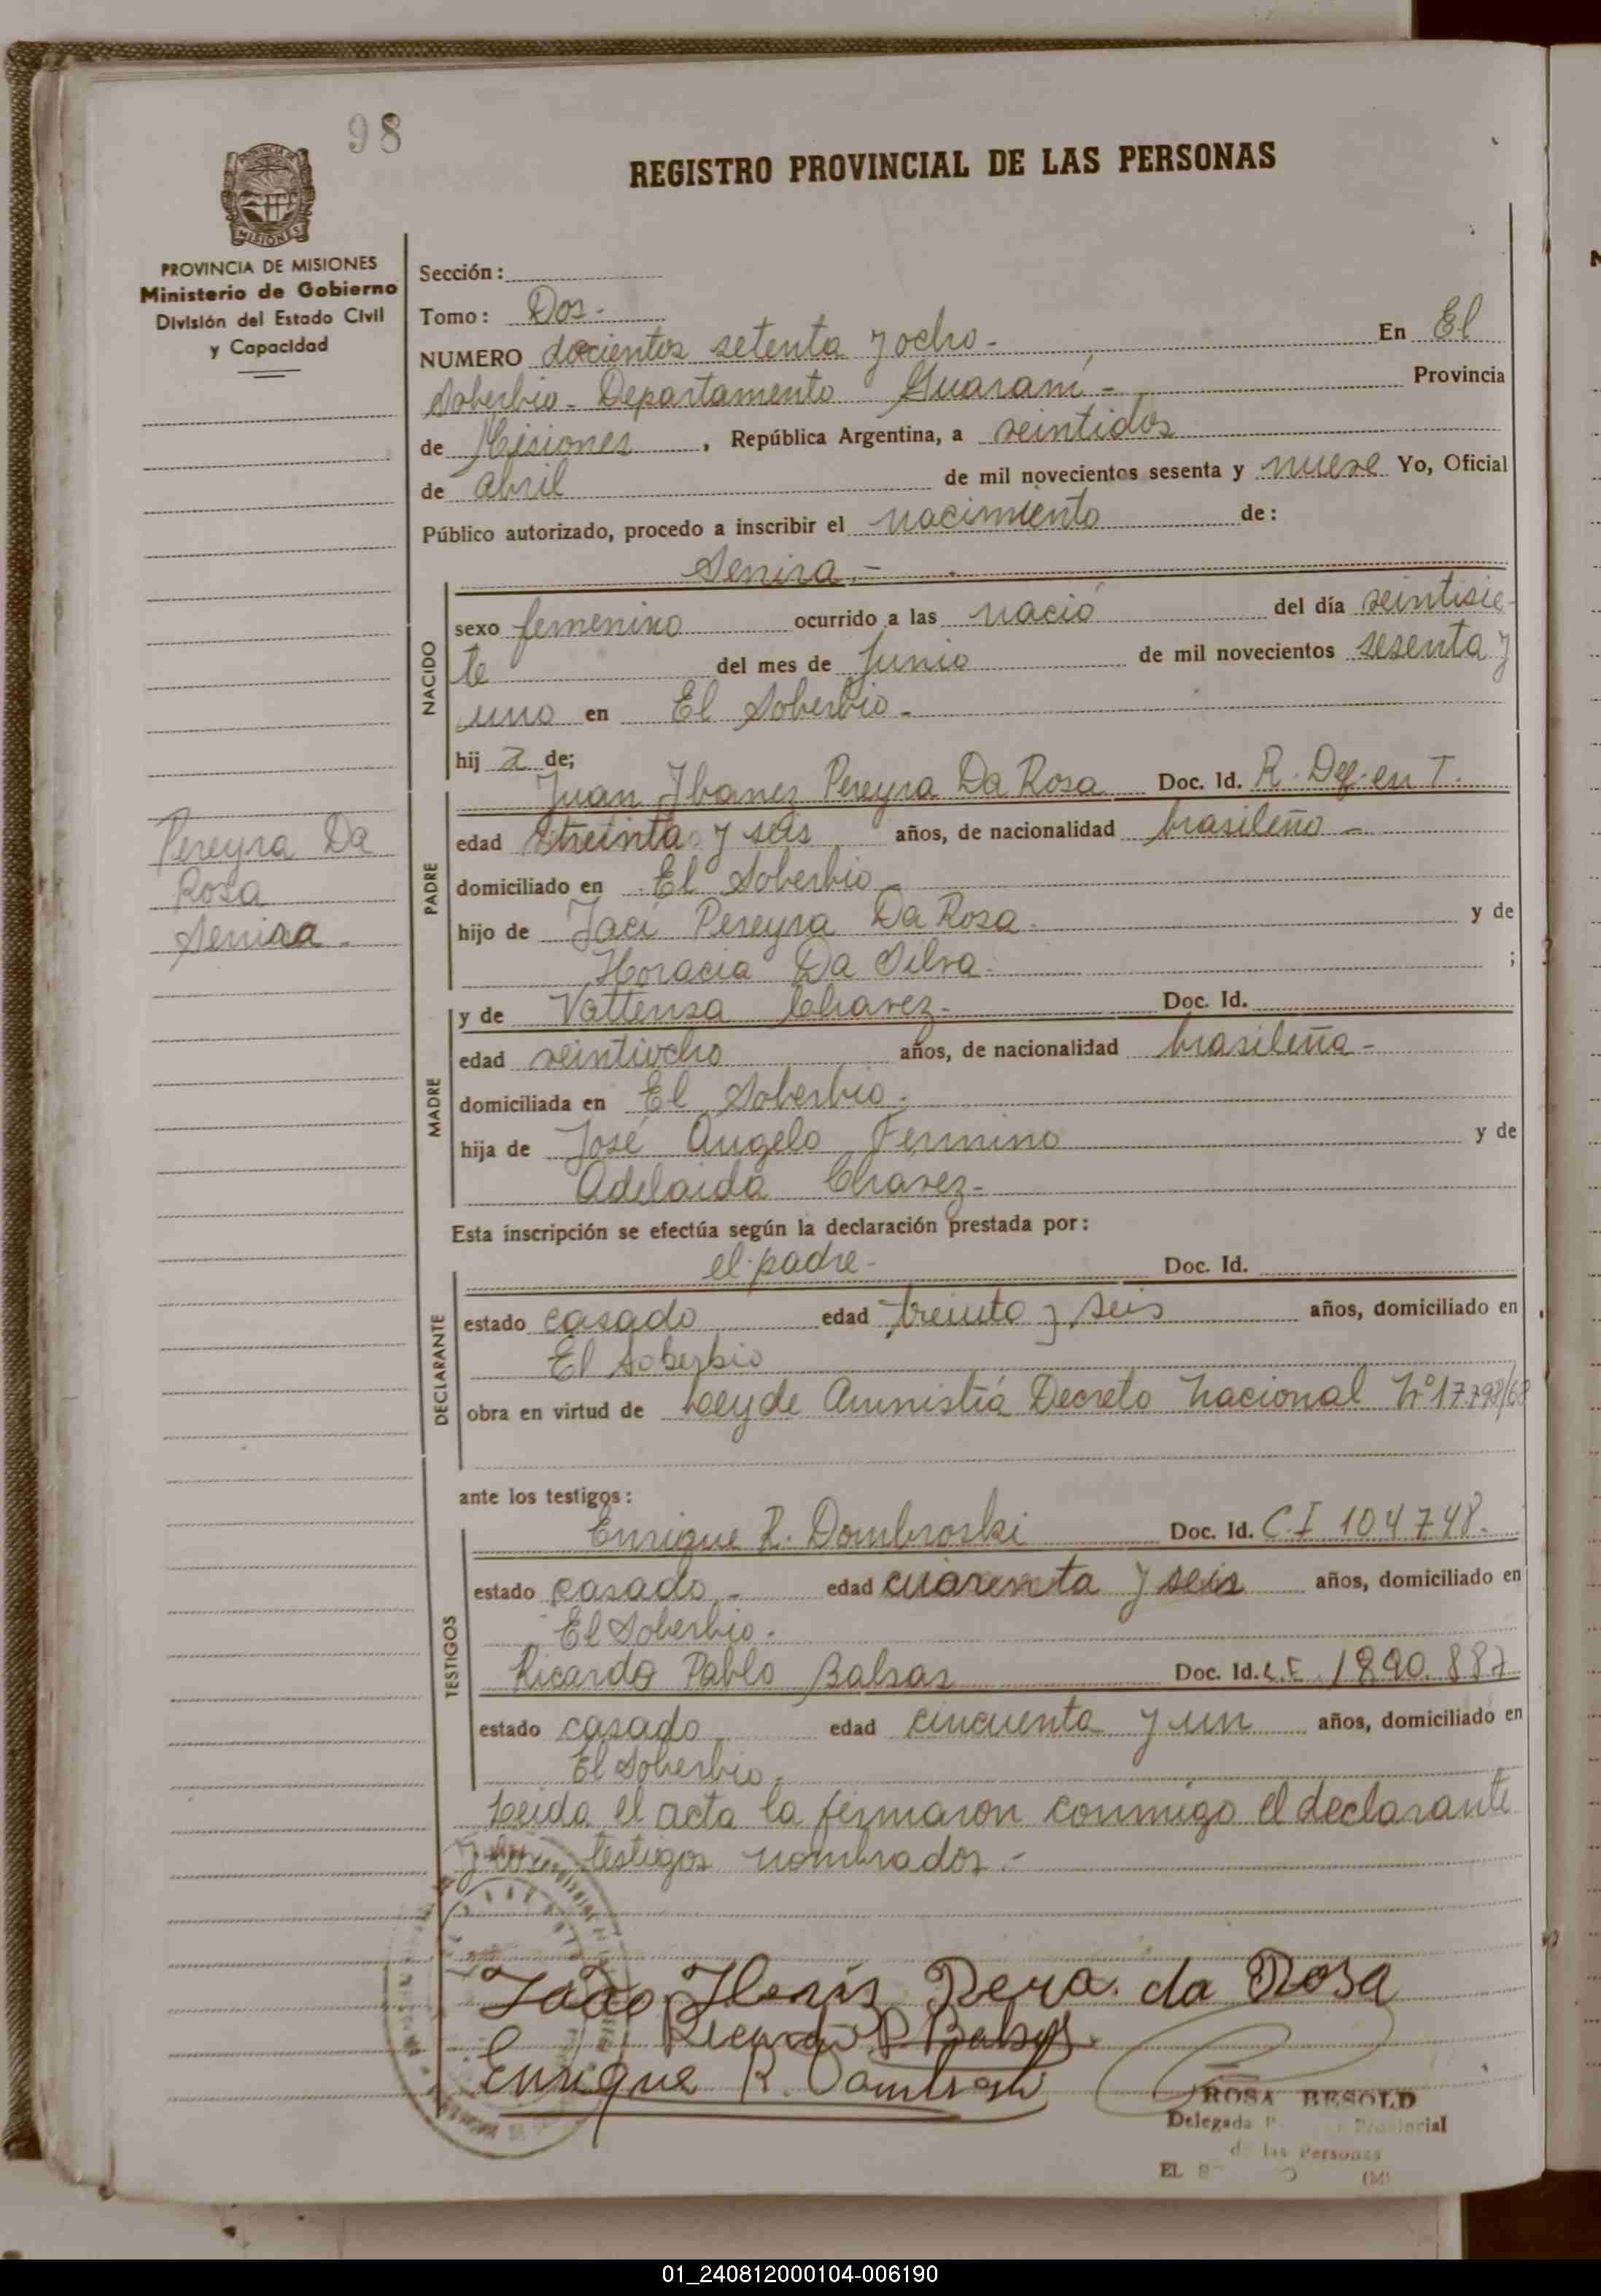 98
REGISTRO PROVINCIAL DE LAS PERSONAS
PROVINCIA DE MISIONES
Ministerio de Gobierno
División del Estado Civil
y Capacidad
Sección:
Tomo: Dos-
NUMERO docientos setenta y ocho- En El
Soberbio- Departamento Guaraní- Provincia
de Misiones, República Argentina, a veintidos
de abril de mil novecientos sesenta y nueve Yo, Oficial
Público autorizado, procedo a inscribir el nacimiento de:
Senira.-
NACIDO
sexo femenino ocurrido a las nació del día veintisie-
te del mes de Junio de mil novecientos sesenta y
uno en El Soberbio-
hij a de;
Juan Ibanez Pereyra Da Rosa Doc. Id. R. Deg. en T.
PADRE
edad treinta y seis años, de nacionalidad brasileño-
domiciliado en El Soberbio-
hijo de Jaci Pereyra Da Rosa- y de
Horacia Da Silva- ;
Pereyra Da
Rosa
Senira-
MADRE
y de Vattensa Chavez- Doc. Id.
edad veintiocho años, de nacionalidad brasileña-
domiciliada en El Soberbio-
hija de José Angelo Fermino y de
Adelaida Chavez-
Esta inscripción se efectúa según la declaración prestada por:
el padre- Doc. Id.
DECLARANTE
estado casado edad treinta y seis años, domiciliado en
El Soberbio
obra en virtud de Ley de Amnistía Decreto Nacional N°17.798/68
ante los testigos:
TESTIGOS
Enrique R. Dombroski Doc. Id. C.I 104748.
estado casado- edad cuarenta y seis años, domiciliado en
El Soberbio-
Ricardo Pablo Balsas Doc. Id. L.E. 1890.887
estado casado edad cincuenta y un años, domiciliado en
El Soberbio-
Leida el acta la firmaron conmigo el declarante
y los testigos nombrados.-
João Pera. da Rosa
Ricardo P. Balsas
Enrique R. Dombroski
ROSA BESOLD
Delegada Provincial
de las Personas
EL (M)
01_240812000104-006190